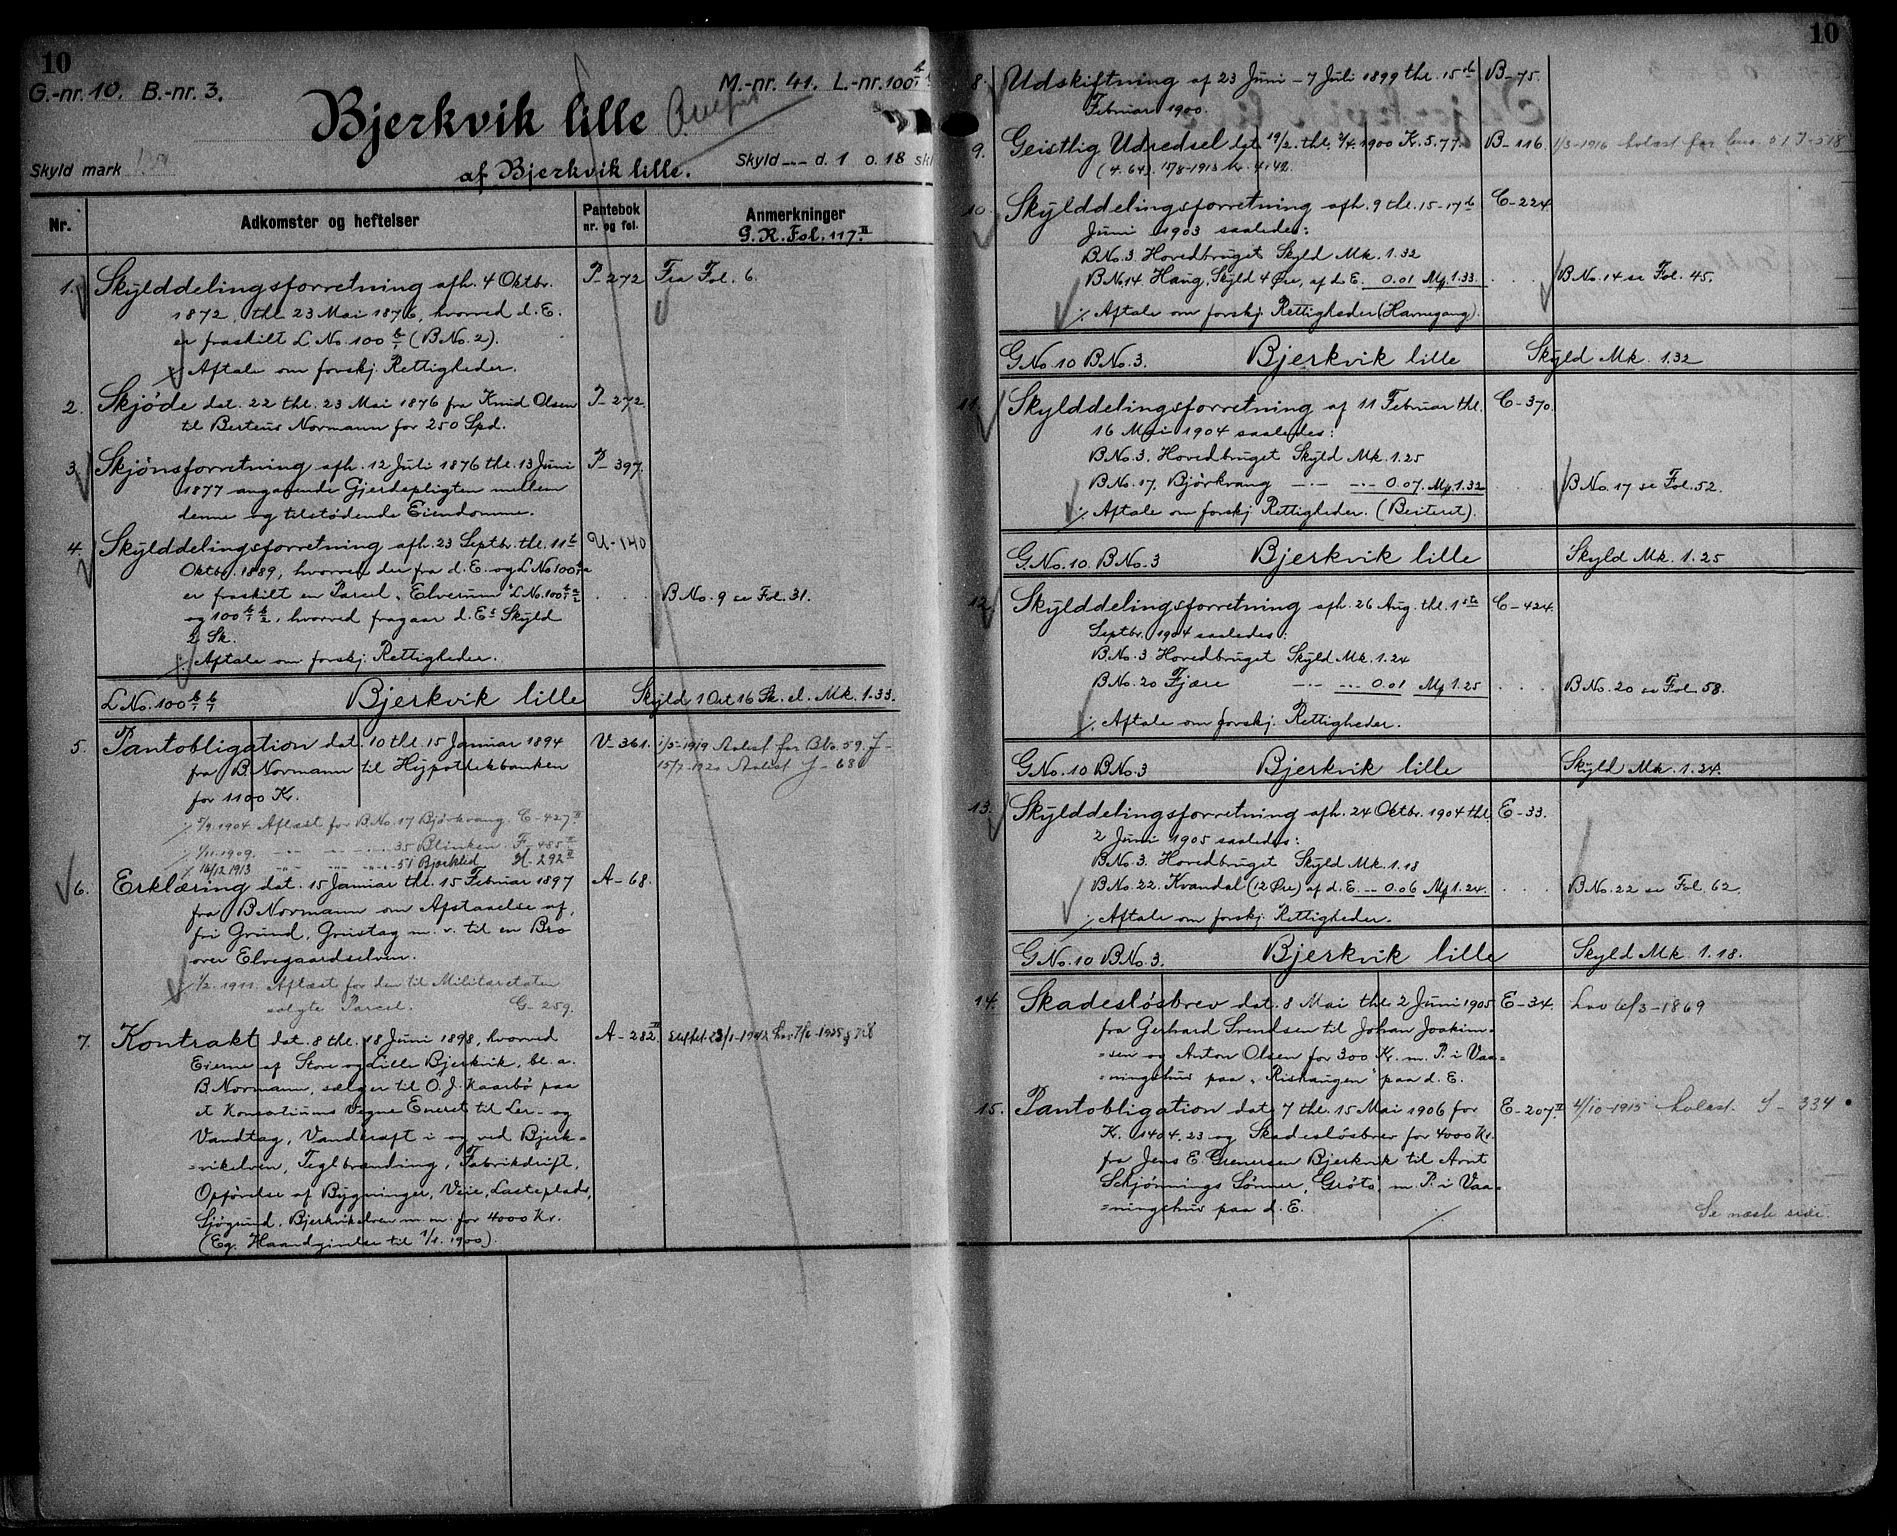 10
G.-nr. 10. B.-nr. 3.
M.-nr. 41. L.-nr. 100
Bjerkvik lille
Skyld mark
af Bjerkvik lille.
Skyld --- d. 1 o. 18 sk
Nr.
Adkomster og heftelser
Pantebok
nr. og fol.
Anmerkninger
G.R. Fol. 117 II
1. Skylddelingsforretning afh. 4 Oktbr. P-272 Fra Fol. 6.
1872, thl. 23 Mai 1876, hvorved d. E.
er fraskilt L No. 100 b/1 (B No. 2).
./. Aftale om forskj. Rettigheder.
2. Skjøde dat. 22 thl. 23 Mai 1876 fra Knud Olsen P-272.
til Berteus Normann for 250 Spd.
3. Skjønsforretning afh. 12 Juli 1876 thl. 13 Juni P-397.
1877 angaaende Gjerdepligten mellem
denne og tilstødende Eiendomme.
4. Skylddelingsforretning afh. 23 Septbr. thl. 11te U-140
Oktbr. 1889, hvorved der fra d. E. og L No 100
er fraskilt en Parcel „Elverum" L No. 100 . . . B No. 9 se Fol. 31.
og 100, hvorved fragaar d. Es Skyld
2 Sk.
./. Aftale om forskj. Rettigheder.
L No. 100 b/1 b/1 Bjerkvik lille Skyld 1 Ort 16 Sk. el. Mk. 1.33.
5. Pantobligation dat. 10 thl. 15 Januar 1894 V-361. 1/5-1919 Avlest for Bb. 59. J-
fra B. Normann til Hypothekbanken 15/7-1920 Avlest J-68
for 1100 Kr.
./. 5/9 1904 Aflæst for B No. 17 Bjørkvang C-427 II
./. 1/11-1909. --- 35 Blinken F-485 II
./. 16/12 1913 --- 51 Bjerklid H. 292 II
6. Erklæring dat. 15 Januar thl. 15 Februar 1897 A-68.
fra B Normann om Afstaaelse af
fri Grund, Grustag m. v. til en Bro
over Elvegaardselven.
./. 1/2. 1911. Aflæst for den til Militæretaten
solgte Parcel. G-259.
7. Kontrakt dat. 8 thl. 18 Juni 1898, hvorved A-282 II Slettet 23/1-1942 Lov 7/6-1935 §
Eierne af Store og Lille Bjerkvik, bl. a.
B. Normann, sælger til O. J. Kaarbø paa
et Konsortiums Vegne Eneret til Ler- og
Vandtag, Vandkraft i og ved Bjerk=
=vikelven, Teglbrænding, Fabrikdrift,
Opførelse af Bygninger, Veie, Lasteplads,
Sjøgrund, Bjerkvikelven m. m. for 4000 Kr.
(Eg. Haandgivelse til 1/1. 1900).
10
8. Udskiftning af 23 Juni - 7 Juli 1899 thl. 15de B-75.
Februar 1900.
9. Geistlig Udredsel dat 19/2. thl. 2/4. 1900 K. 5.77. B-116. 1/3-1916 avlæst for bno 51 J-518
(4.64). 17/8-1913 Kr. 4.42.
10. Skylddelingsforretning afh. 9 thl. 15-17de C-224.
Juni 1903 saaledes:
B No. 3 Hovedbruget Skyld Mk. 1.32
B No 14 Haug, Skyld 4 Øre, af d. E. 0.01 Mk. 1.33 . . . B No. 14 se Fol. 45.
./. Aftale om forskj. Rettigheder (Havnegang).
G No. 10 B No. 3. Bjerkvik lille Skyld Mk. 1.32
11. Skylddelingsforretning af 11 Februar thl. C-370.
16 Mai 1904 saaledes:
B No. 3. Hovedbruget Skyld Mk. 1.25
B No. 17. Bjørkvang --- --- 0.07. Mk. 1.32 . . . B No. 17 se Fol. 52.
./. Aftale om forskj. Rettigheder. (Beiteret).
G No. 10. B No. 3 Bjerkvik lille Skyld Mk. 1.25
12. Skylddelingsforretning afh. 26 Aug. thl. 1ste C-424.
Septbr. 1904 saaledes:
B No. 3 Hovedbruget Skyld Mk. 1.24
B No. 20 Fjære --- --- 0.01 Mk 1.25 . . . B No. 20 se Fol. 58.
./. Aftale om forskj. Rettigheder.
G No. 10 B No. 3 Bjerkvik lille Skyld Mk. 1.24.
13. Skylddelingsforretning afh. 24 Oktbr. 1904 thl. E-33.
2 Juni 1905 saaledes:
B No. 3. Hovedbruget Skyld Mk. 1.18
B No. 22. Kvandal (12 Øre) af d. E. --- 0.06 Mk 1.24. . . . B No. 22 se Fol. 62.
./. Aftale om forskj. Rettigheder.
G No. 10 B No. 3. Bjerkvik lille Skyld Mk. 1.18.
14. Skadesløsbrev dat. 8 Mai thl. 2 Juni 1905 E-34. Lov 6/3-1869
fra Gerhard Svendsen til Johan Joakim=
=sen og Anton Olsen for 300 Kr. m. P. i Vaa=
=ningshus paa „Rishaugen" paa d. E.
15. Pantobligation dat. 7 thl. 15 Mai 1906 for E-207 II 4/10-1915 Avlæst. J-334
Kr. 1404.23 og Skadesløsbrev for 4000 Kr.
fra Jens E. Grenersen Bjerkvik til Arnt
Schjønnings Sønner, Grøtø, m. P. i Vaa=
=ningshus paa d. E.
Se næste side.